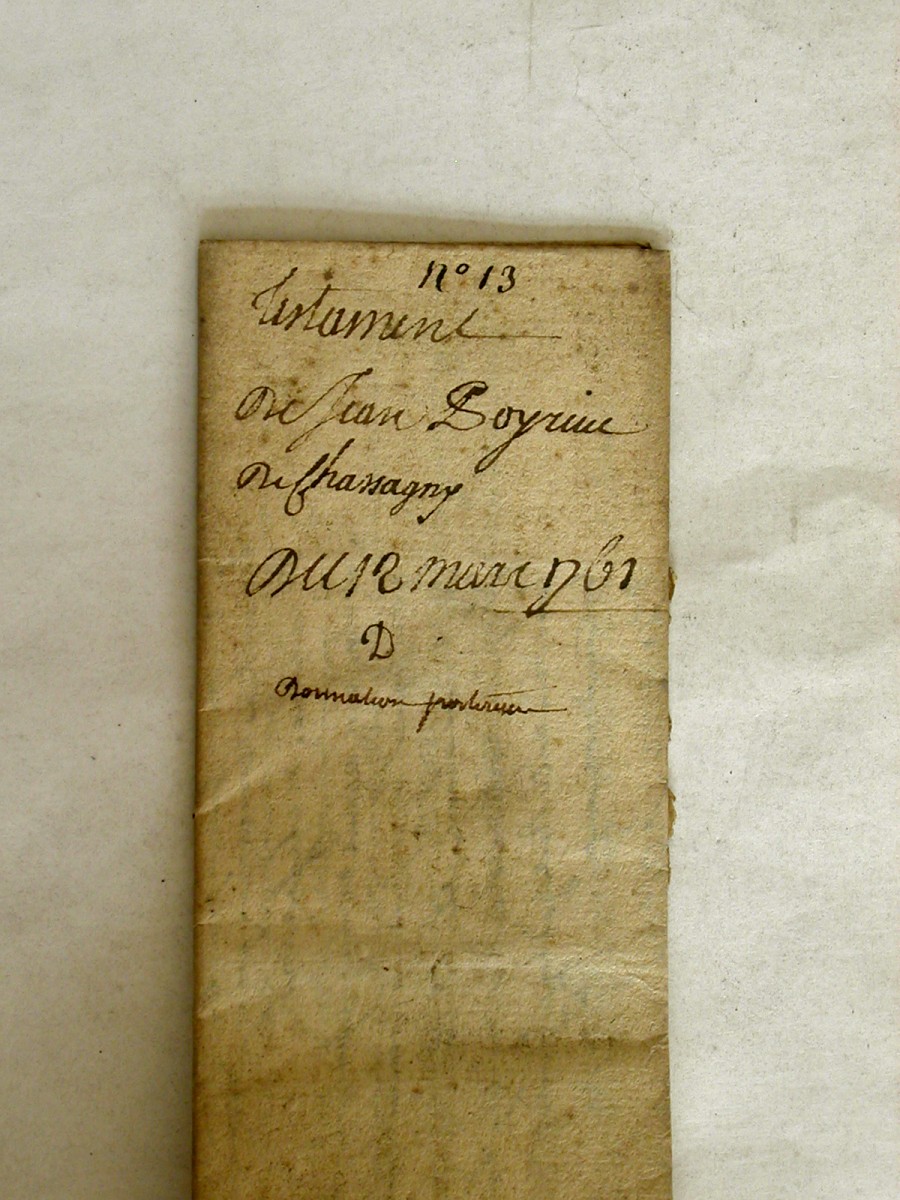 n° 13
Testament
De Jean Boyriue
De Chassagny
Du 12 mars 1761
D
Donnation